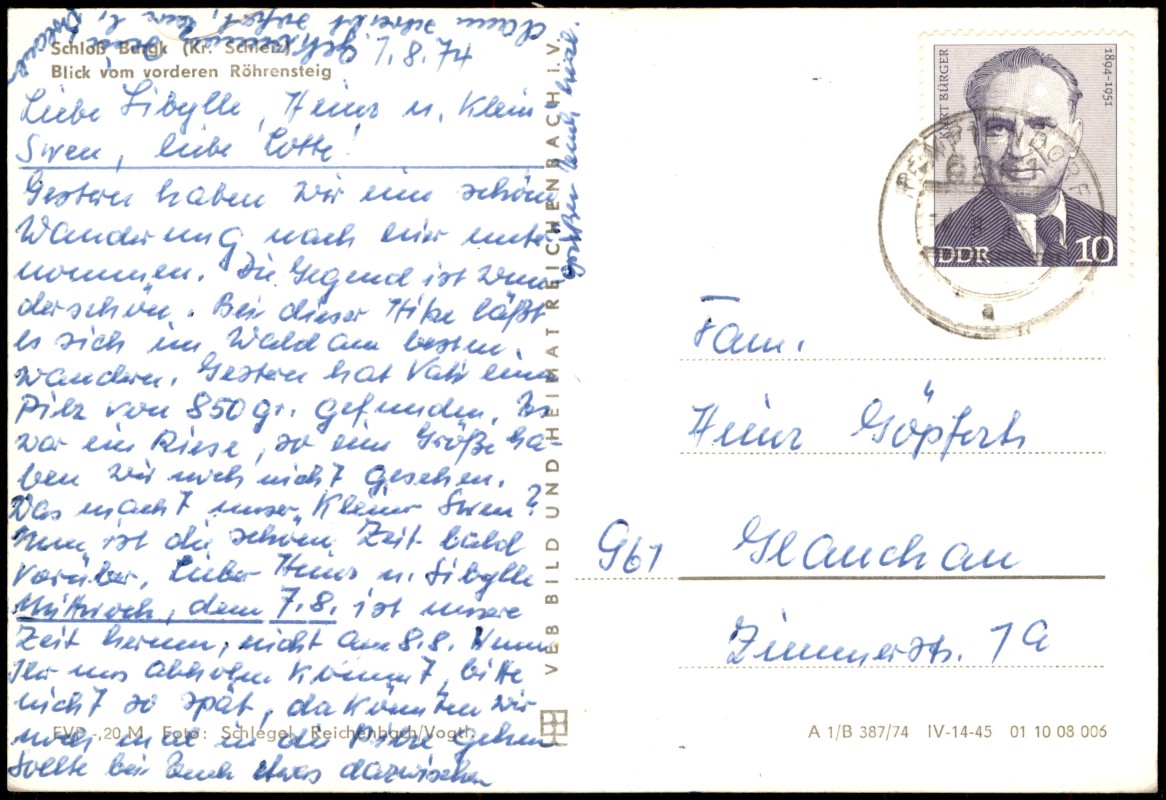 Schloß Burgk (Kr. Schleiz)
Blick vom vorderen Röhrensteig
1.8.74
Liebe Sibylle, Heinz u. Klein
Swen, liebe Lotte!
Gestern haben wir eine schöne
Wanderung nach hier unter
nommen. Die Gegend ist wun
derschön. Bei dieser Hitze läßt
es sich im Wald am besten
wandern. Gestern hat Vati einen
Pilz von 850 gr. gefunden. Es
war ein Riese, so eine Größe ha-
ben wir noch nicht gesehen.
Was macht unser kleiner Swen?
Nun ist die schöne Zeit bald
vorüber. Lieber Heinz u. Sibylle
Mittwoch, dem 7.8. ist unsere
Zeit herum, nicht am 8.8. Wenn
Ihr uns abholen könnt, bitte
nicht so spät, da könnten wir
noch mal in die Pilze gehen
Sollte bei Euch etwas dazwischen
dann schreibt sofort,
Grüßen Euch
VEB BILD UND HEIMAT REICHENBACH I. V.
EVP -,20 M Foto: Schlegel, Reichenbach/Vogtl.
KURT BÜRGER
1894-1951
DDR 10
a
Fam.
Heinz Göpferth
961 Glauchau
Zimmerstr. 1a
A 1/B 387/74 IV-14-45 01 10 08 006